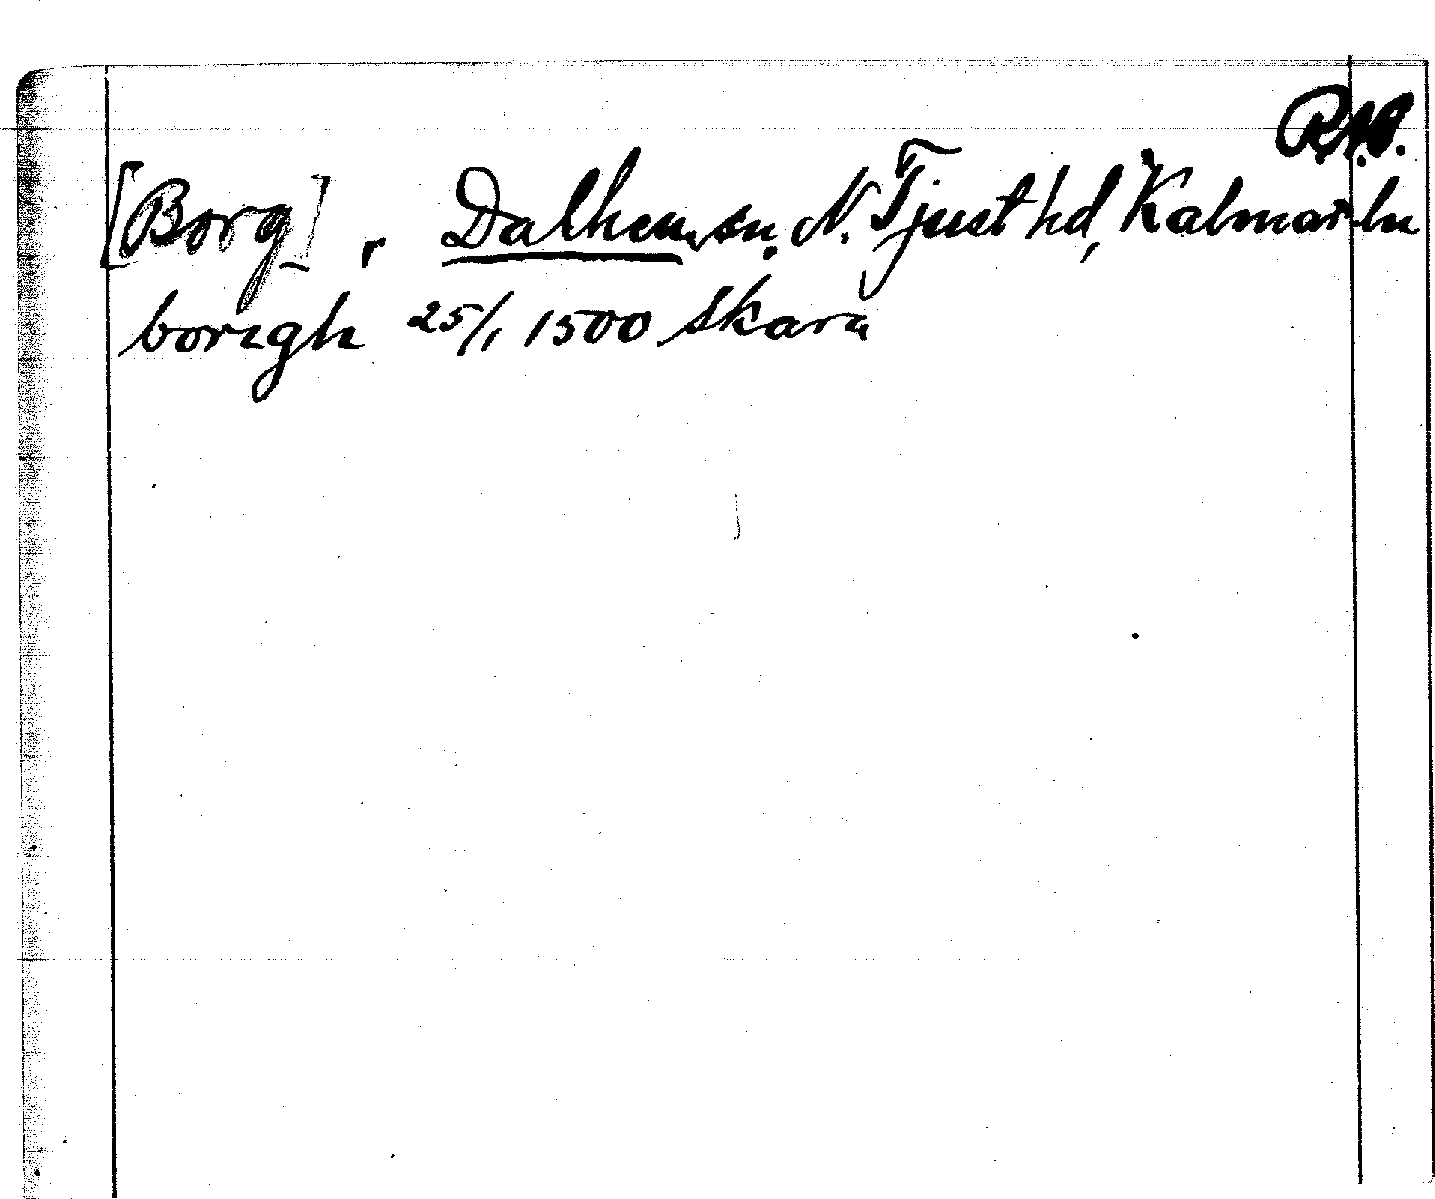 [Borg], Dalhem sn. N. Tjust hd, Kalmar ln
borzgh 25/1 1500 Skara